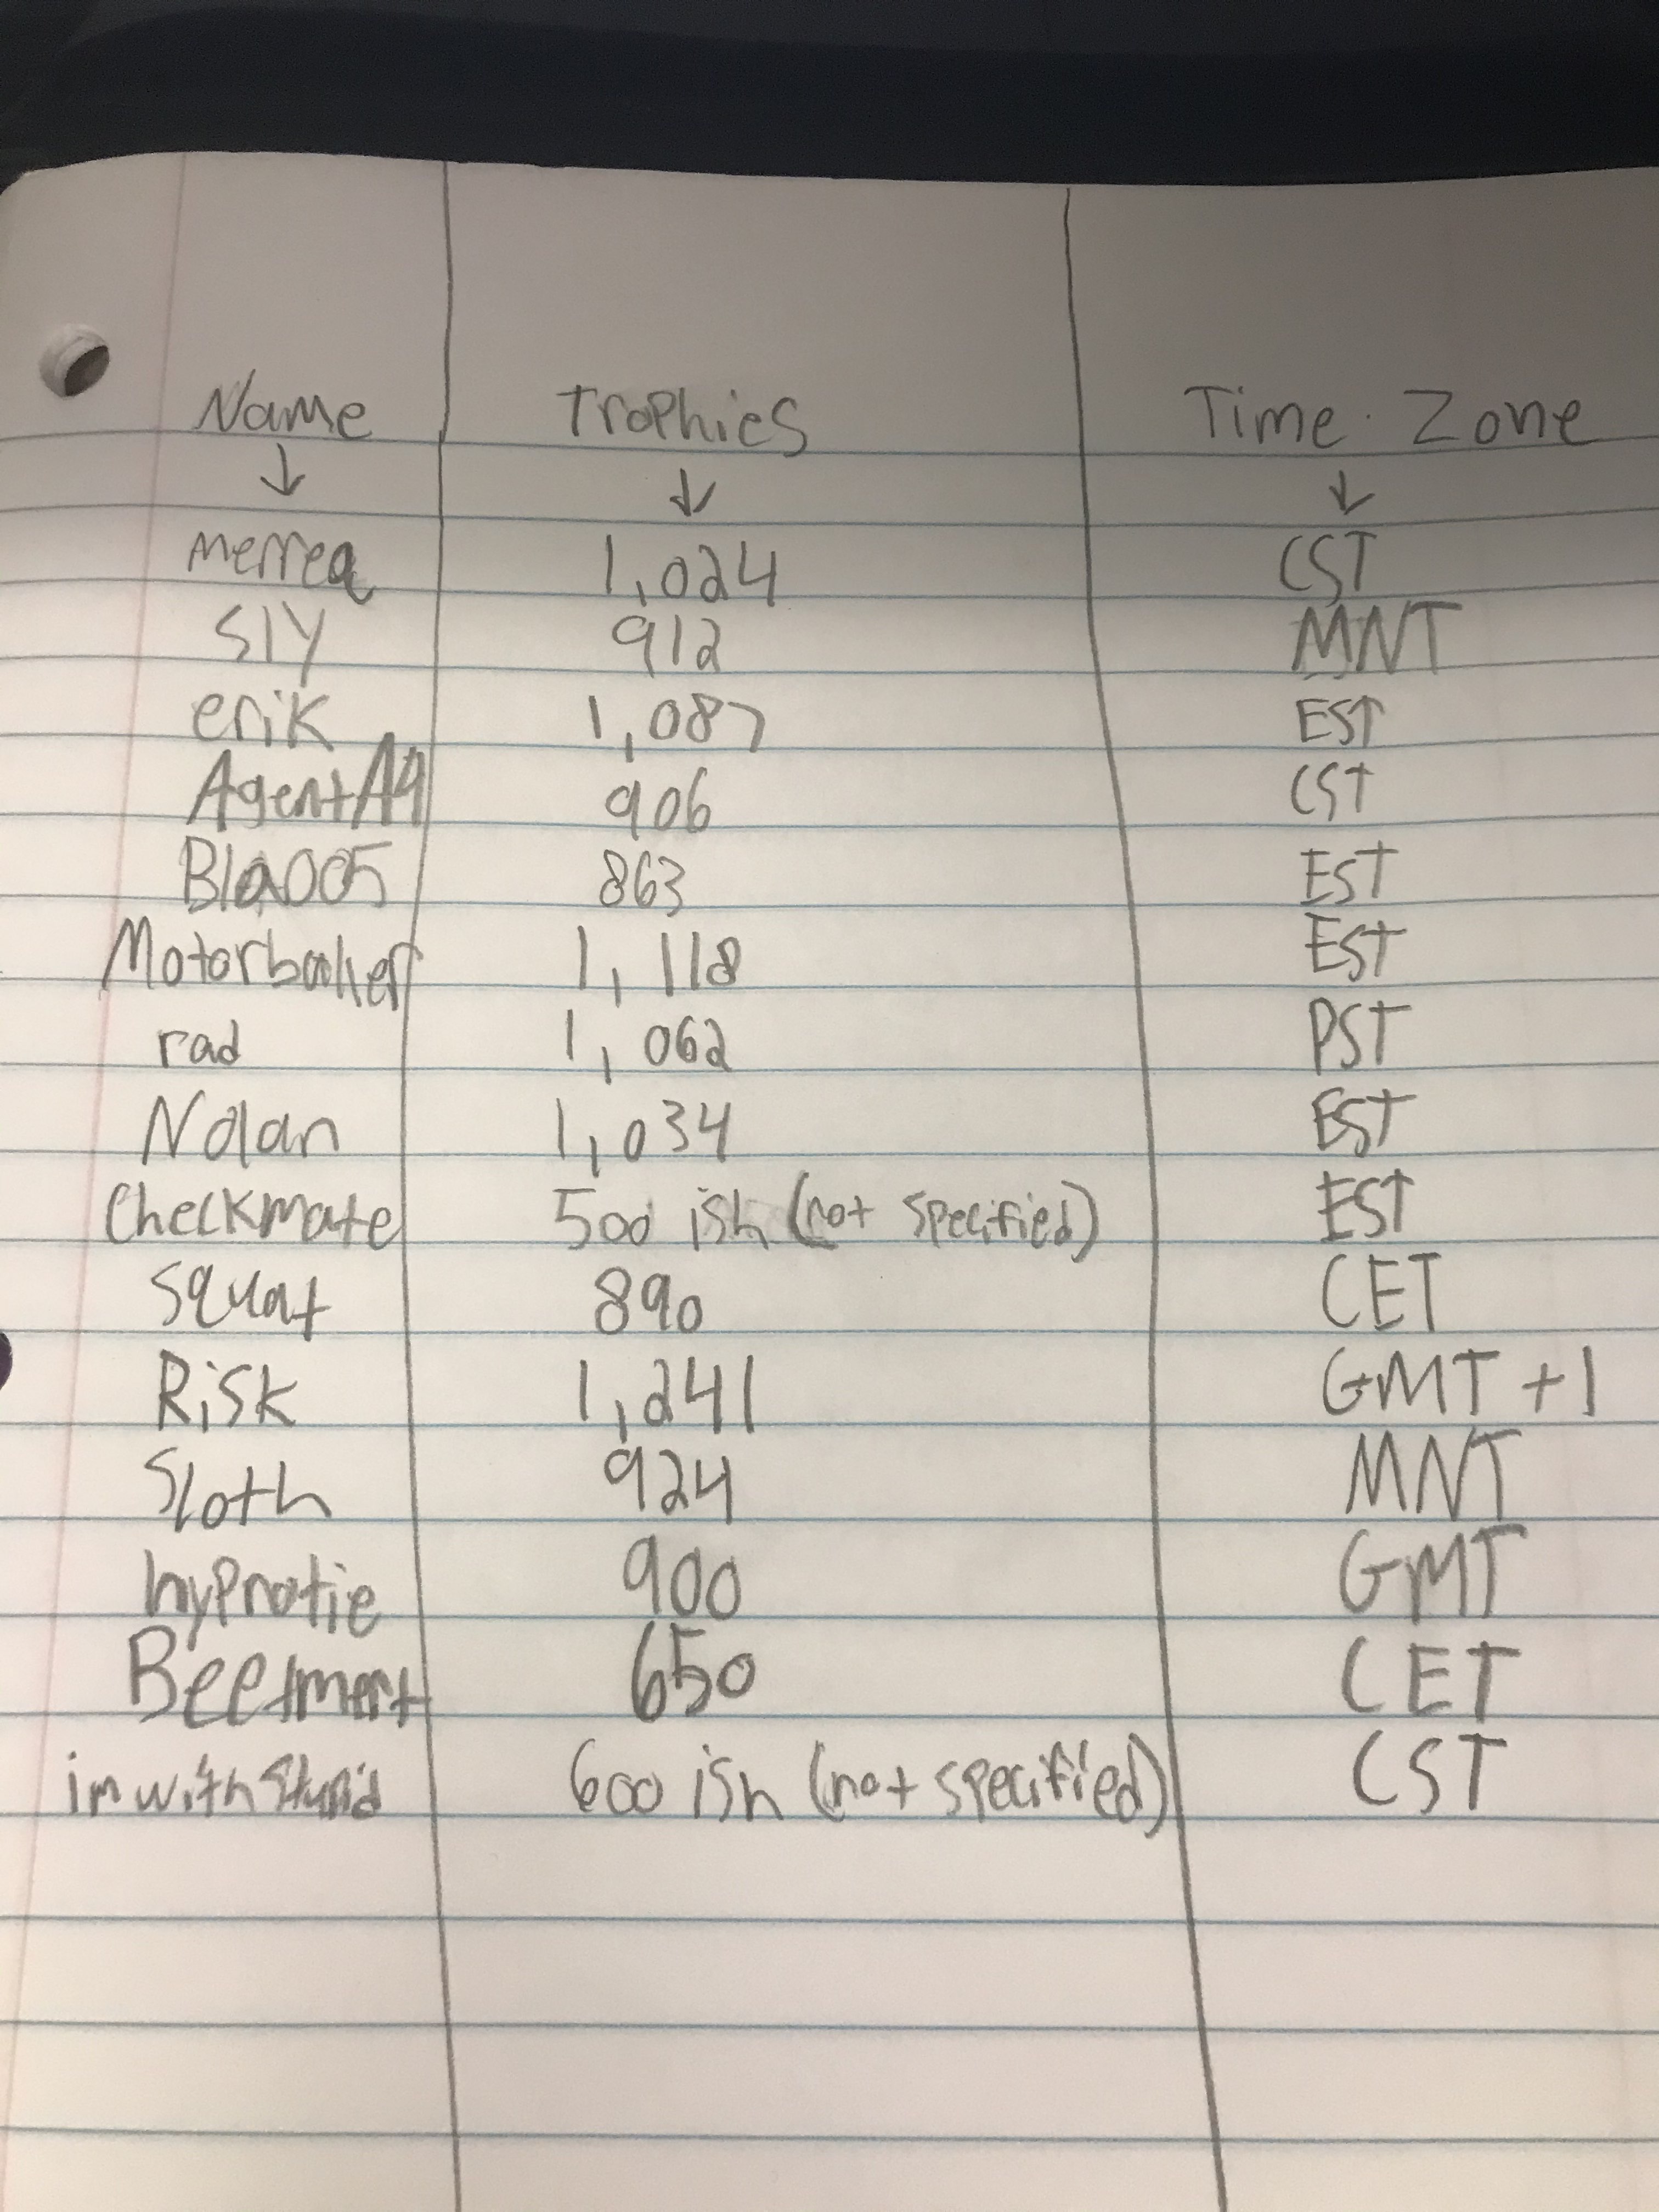 Name Trophies Time Zone
↓ ↓ ↓
merrea 1,024 CST
Sly 912 MNT
erik 1,087 EST
AgentA9 906 CST
Bla005 863 EST
1,118 EST
rad 1,062 PST
Nolan 1,034 EST
Checkmate 500 ish (not specified) EST
Squat 890 CET
Risk 1,241 GMT +1
Sloth 924 MNT
hypnotic 900 GMT
Beetment 650 CET
imwithstupid 600 ish (not specified) CST